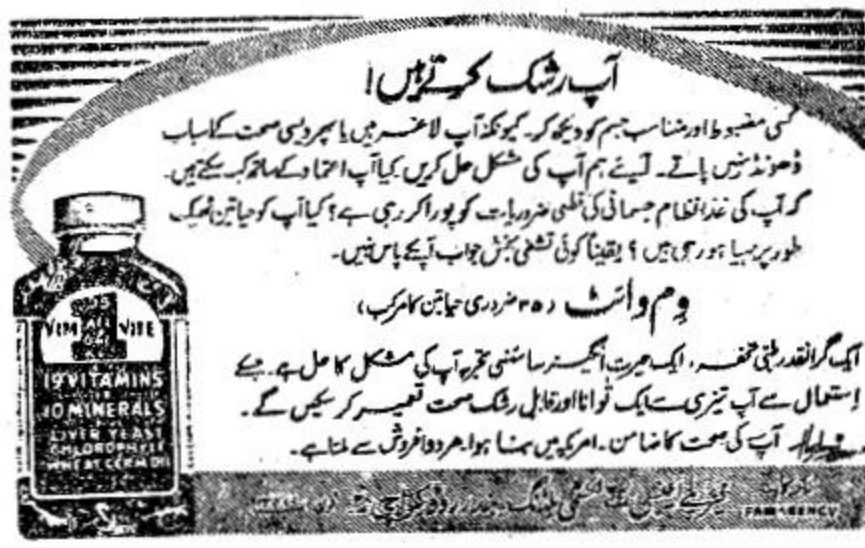 آپ رشک کرتے ہیں!
کسی مضبوط اور متناسب جسم کو دیکھ کر۔ کیونکہ آپ لاغر ہیں یا پھر ویسی صحت کے اسباب
ڈھونڈ نہیں پاتے۔ آیئے ہم آپ کی مشکل حل کریں کیا آپ اعتماد کے ساتھ کہہ سکتے ہیں۔
کہ آپ کی غذا نظام جسمانی کی قطعی ضروریات کو پورا کر رہی ہے؟ کیا آپ کو حیاتین ٹھیک
طور پر مہیا ہو رہی ہیں؟ یقیناً کوئی تشفی بخش جواب آپکے پاس نہیں۔
وِم وائٹ (۳۵ ضروری حیاتین کا مرکب)
ایک گرانقدر طبی تحفہ، ایک حیرت انگیز سائنسی تجربہ آپ کی مشکل کا حل ہے۔ جسکے
استعمال سے آپ تیزی سے ایک توانا اور قابل رشک صحت تعمیر کر سکیں گے۔
آپ کی صحت کا ضامن۔ امریکہ میں بنا ہوا ہر دوا فروش سے ملتا ہے۔
VIM 1 VITE
19 VITAMINS
10 MINERALS
LIVER YEAST
CHLOROPHYLL
WHEAT GERM OIL
بلڈنگ بندر روڈ کراچی